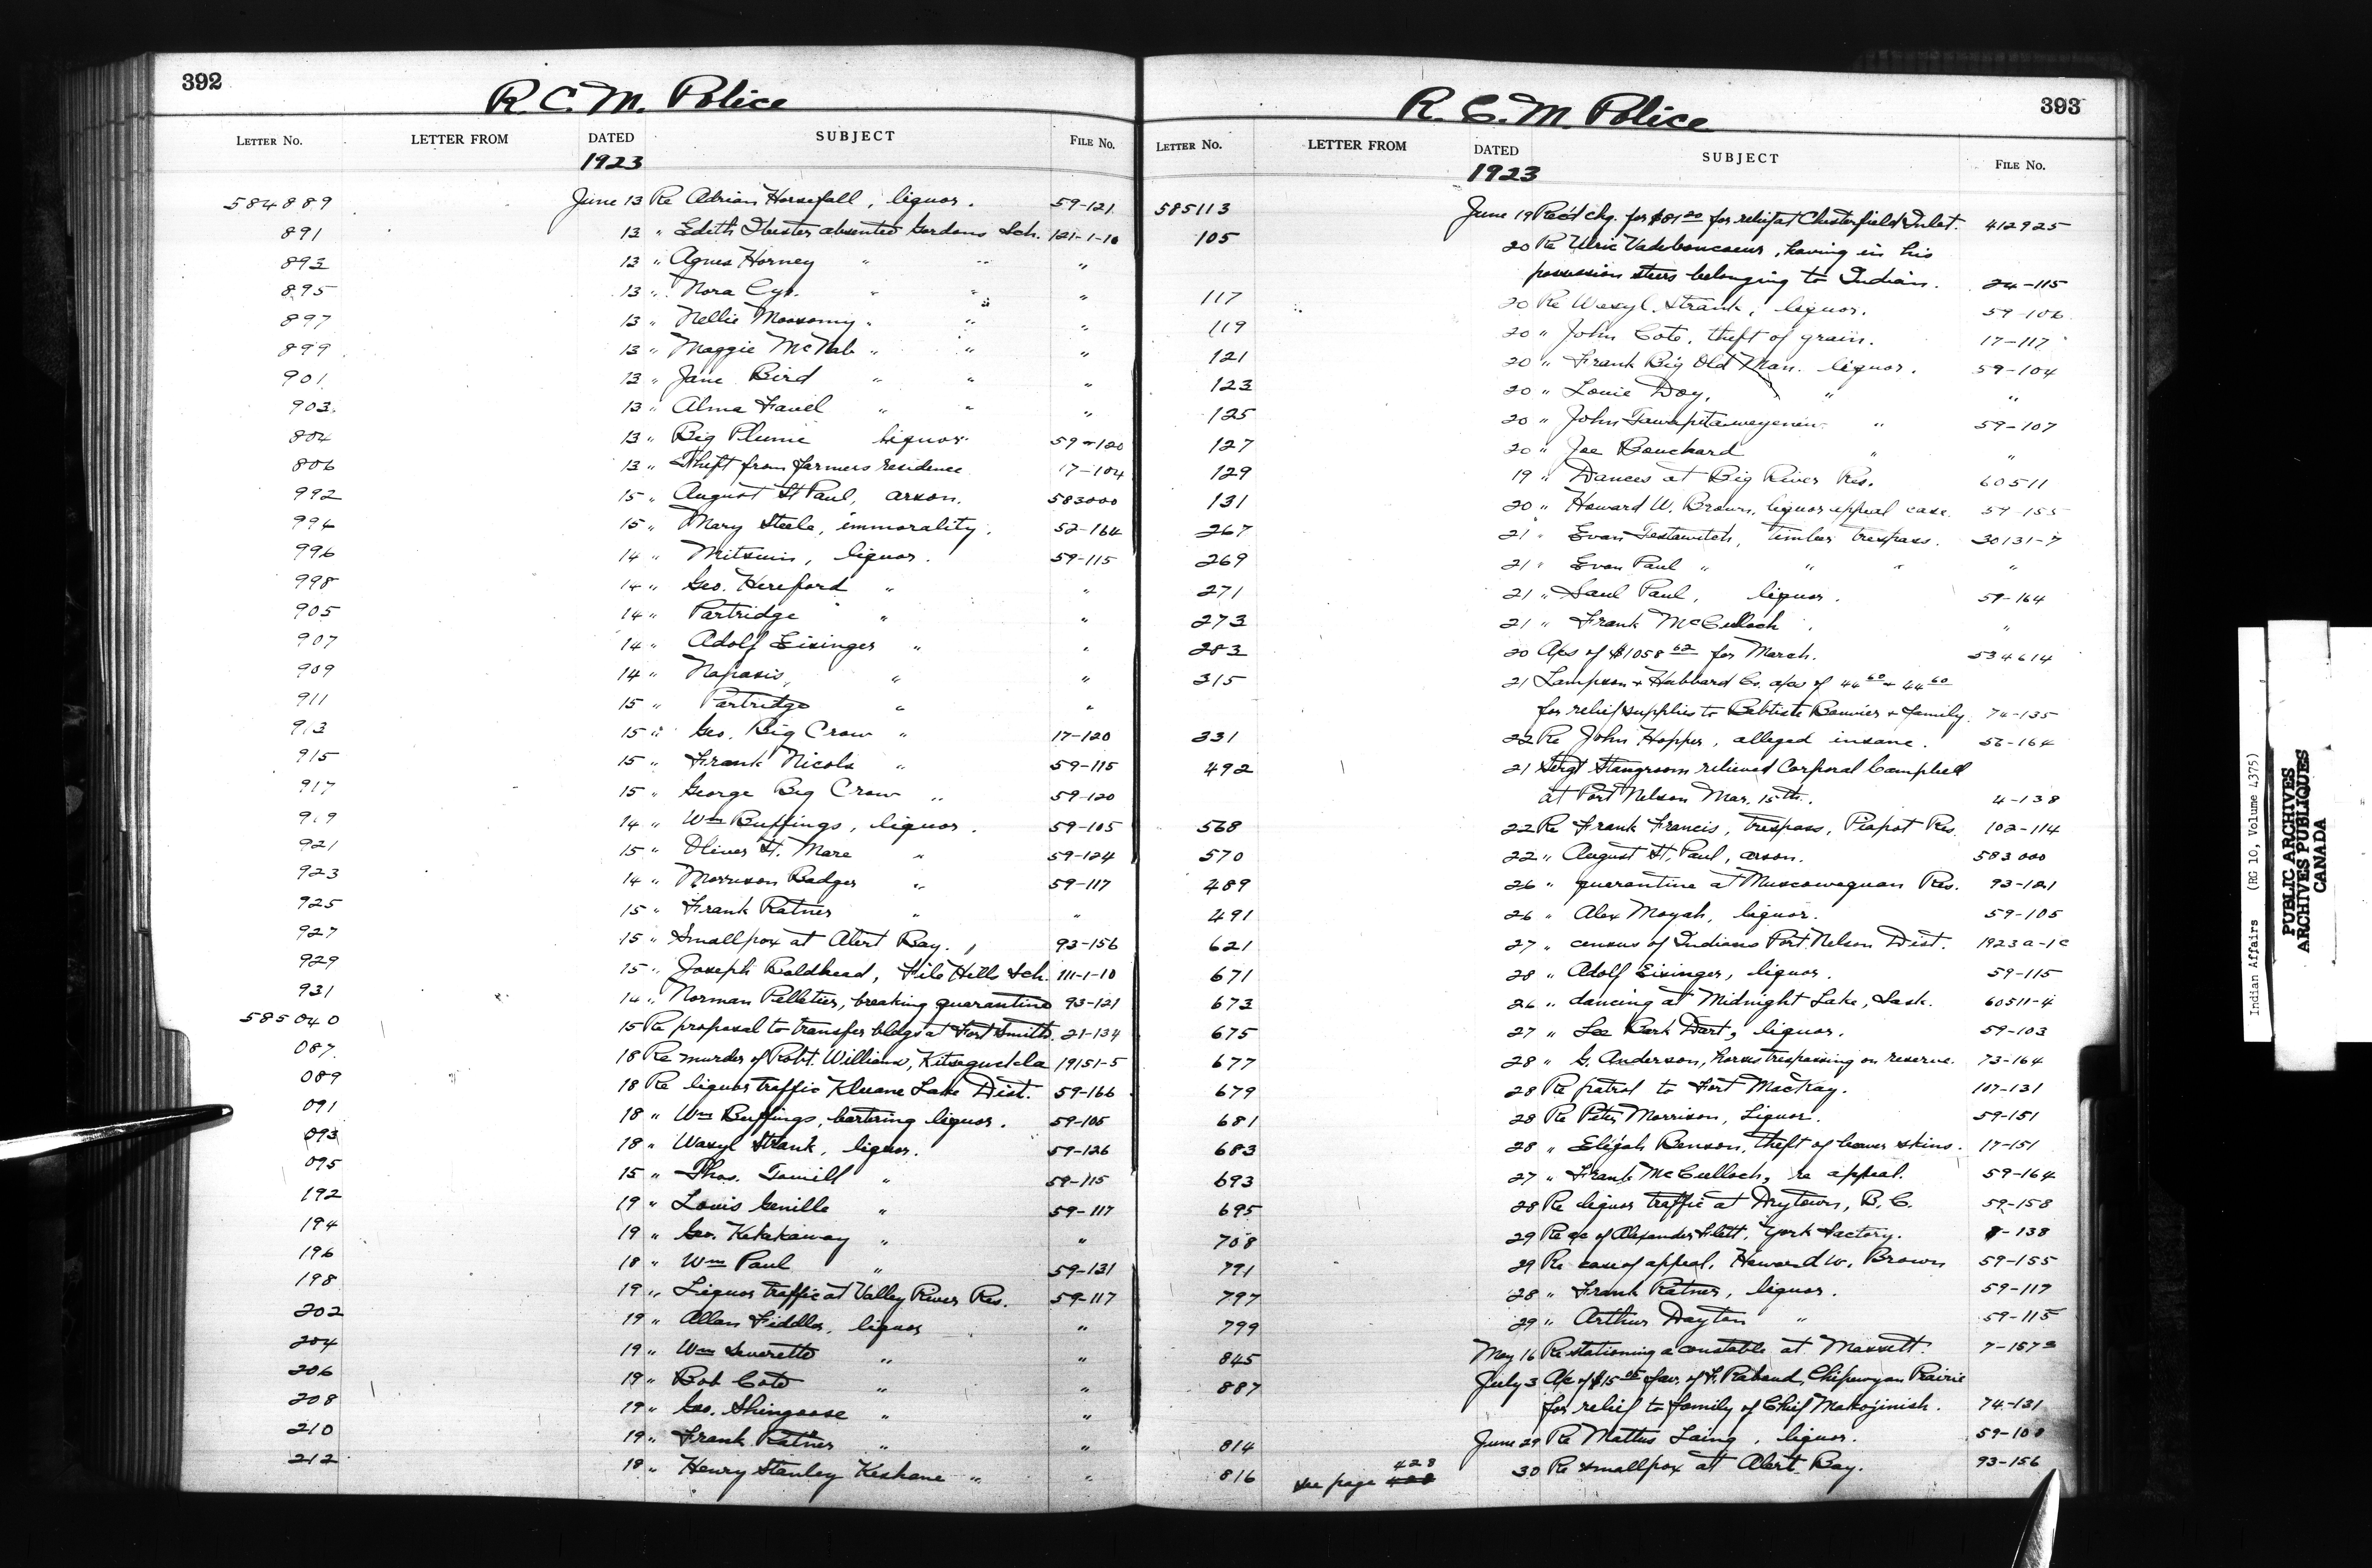 392
R. C. M. Police
LETTER No. LETTER FROM DATED SUBJECT FILE No.
1923
584889 June 13 Re Adrian Horsefall, liquor. 59-121
891 13 " Edith absented Gordons Sch. 121-1-10
893 13 " Agnes Horney " " "
895 13 " Nora Cyr. " " "
897 13 " Nellie Moosomy " " "
899 13 " Maggie McNab " " "
901 13 " Jane Bird " " "
903 13 " Alma Favel " " "
804 13 " Big Plume liquor 59-120
806 13 " Theft from farmers residence 17-104
992 15 " August St Paul, arson. 583000
994 15 " Mary Steele, immorality. 52-164
996 14 " Mitsuin, liquor. 59-115
998 14 " Geo. Hereford " "
905 14 " Partridge " "
907 14 " Adolf Eisinger " "
909 14 " Napasis, " "
911 15 " Partridge " "
913 15 " Geo. Big Crow " 17-120
915 15 " Frank Nicols " 59-115
917 15 " George Big Crow " 59-120
919 14 " Wm Buffings, liquor. 59-105
921 15 " Oliver St. Mare " 59-124
923 14 " Morrison Badger " 59-117
925 15 " Frank Ratner " "
927 15 " Smallpox at Alert Bay. 93-156
929 15 " Joseph Baldhead, File Hills Sch. 111-1-10
931 14 " Norman Pelletier, breaking quarantine 93-121
585040 15 Re proposal to transfer bldgs at Fort Smith. 21-134
087 18 Re murder of Robt. Williams, Kitsegucla 19151-5
089 18 Re liquor traffic Kluane Lake Dist. 59-166
091 18 " Wm Buffings, bartering liquor. 59-105
093 18 " Wasyl Strank, liquor. 59-126
095 15 " Thos. Tamill " 59-115
192 19 " Louis Genille " 59-117
194 19 " Geo. Kekekaway " "
196 18 " Wm Paul " 59-131
198 19 " Liquor traffic at Valley River Res. 59-117
202 19 " Allan Fiddler, liquor "
204 19 " Wm Leverette " "
206 19 " Bob Cote " "
208 19 " Geo. Shingoose " "
210 19 " Frank Ratner " "
212 18 " Henry Stanley Keshane " "
393
R. C. M. Police
LETTER No. LETTER FROM DATED SUBJECT FILE No.
1923
585113 June 19 Rec'd chq. for $81.20 for relief at Chesterfield Inlet. 412925
105 20 Re Ulric Vadeboncoeur, having in his
possession steers belonging to Indian. 24-115
117 20 Re Wasyl Strank, liquor. 59-106
119 20 " John Cote, theft of grain. 17-117
121 20 " Frank Big Old Man. liquor. 59-104
123 20 " Louie Doy, " "
125 20 " John " 59-107
127 20 " Joe Bouchard " "
129 19 " Dances at Big River Res. 60511
131 20 " Howard W. Brown, liquor appeal case. 59-155
267 21 " Evan Testawitch, timber trespass. 30131-7
269 21 " Evan Paul " " " "
271 21 " Saul Paul, liquor. 59-164
273 21 " Frank McCulloch. "
283 20 A/cs of $1058 62 for March. 534614
315 21 Lampson & Hubbard Co. a/cs of 44 60 & 44 60
for relief supplies to Bebtiste Bouvier & family. 74-135
331 22 Re John Hopper, alleged insane. 56-164
492 21 Sergt Stangroom relieved Corporal Campbell
at Port Nelson Mar. 15th. 4-138
568 22 Re Frank Francis, trespass, Piapot Res. 102-114
570 22 " August St. Paul, arson. 583000
489 26 " quarantine at Muscowequan Res. 93-121
491 26 " Alex Moyah, liquor. 59-105
621 27 " census of Indians Port Nelson Dist. 1923a-1c
671 28 " Adolf Eisinger, liquor. 59-115
673 26 " dancing at Midnight Lake, Sask. 60511-4
675 27 " Lee Dart, liquor. 59-103
677 28 " G. Anderson, horses trespassing on reserve. 73-164
679 28 Re patrol to Fort MacKay. 107-131
681 28 Re Peter Morrison, Liquor. 59-151
683 28 " Elijah Benson, theft of beaver skins. 17-151
693 27 " Frank McCulloch, re appeal. 59-164
695 28 Re liquor traffic at Drytown, B.C. 59-158
708 29 Re a/c of Alexander Flett, York Factory. 8-138
791 29 Re case of appeal, Howard W. Brown 59-155
797 28 " Frank Ratner, liquor. 59-117
799 29 " Arthur Dayton " 59-115
845 May 16 Re stationing a constable at Massett. 7-157
887 July 3 A/c of $15 fav. of F. Rabaud, Chipewyan Prairie
for relief to family of Chief Makojinish. 74-131
814 June 29 Re Mattus Laing, liquor. 59-108
816 see page 428 30 Re smallpox at Alert Bay. 93-156
Indian Affairs (RG 10, Volume 4375)
PUBLIC ARCHIVES
ARCHIVES PUBLIQUES
CANADA